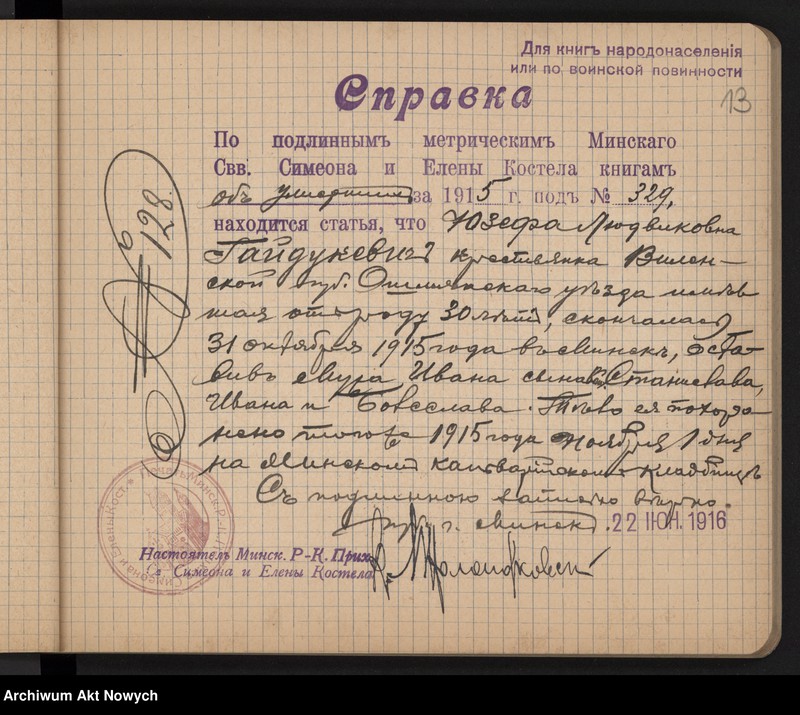 Для книгъ народонаселенія
или по воинской повинности
13
Справка
По подлиннымъ метрическимъ Минскаго
Свв. Симеона и Елены Костела книгамъ
объ умершихъ за 1915 г. подъ № 329,
находится статья, что Юзефа Людвиковна
Гайдукевичъ крестьянка Вилен-
ской губ. Ошмянскаго уѣзда имѣв
шая отъ роду 30 лѣтъ, скончалась
31 октября 1915 года въ Минскѣ, оста-
вивъ мужа Ивана сыновей Станислава,
Ивана и Болеслава. Тѣло ея похоро
нено того же 1915 года ноября 1 дня
на Минскомъ кальварійскомъ кладбищѣ
Съ подлинною записью вѣрно.
г. Минскъ. 22 ІЮН. 1916
Настоятель Минск. Р-К. Прих.
Св. Симеона и Елены Костела
№ 1628
Archiwum Akt Nowych